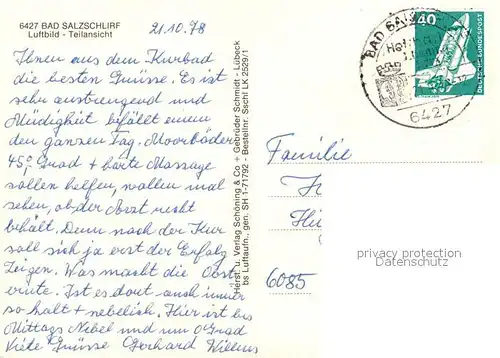 6427 BAD SALZSCHLIRF
Luftbild - Teilansicht
21.10.78
Ihnen aus dem Kurbad
die besten Grüsse. Es ist
sehr anstrengend und
Müdigkeit befällt einen
den ganzen Tag. Moorbäder
45° Grad + harte Massage
sollen helfen, wollen mal
sehen, ob der Arzt recht
behält. Denn nach der Kur
soll sich ja erst der Erfolg
zeigen. Was macht die Obst
ernte. Ist es dort auch immer
so kalt + nebelig. Hier ist bis
Mittags Nebel und nur 0° Grad
Viele Grüsse Gerhard
Herst. u. Verlag Schöning & Co + Gebrüder Schmidt - Lübeck
bs Luftaufn., gen. SH 1-71792 - Bestellnr. Sschl LK 2529/1
BAD
6427
40
DEUTSCHE BUNDESPOST
Familie
6085
privacy protection
Datenschutz